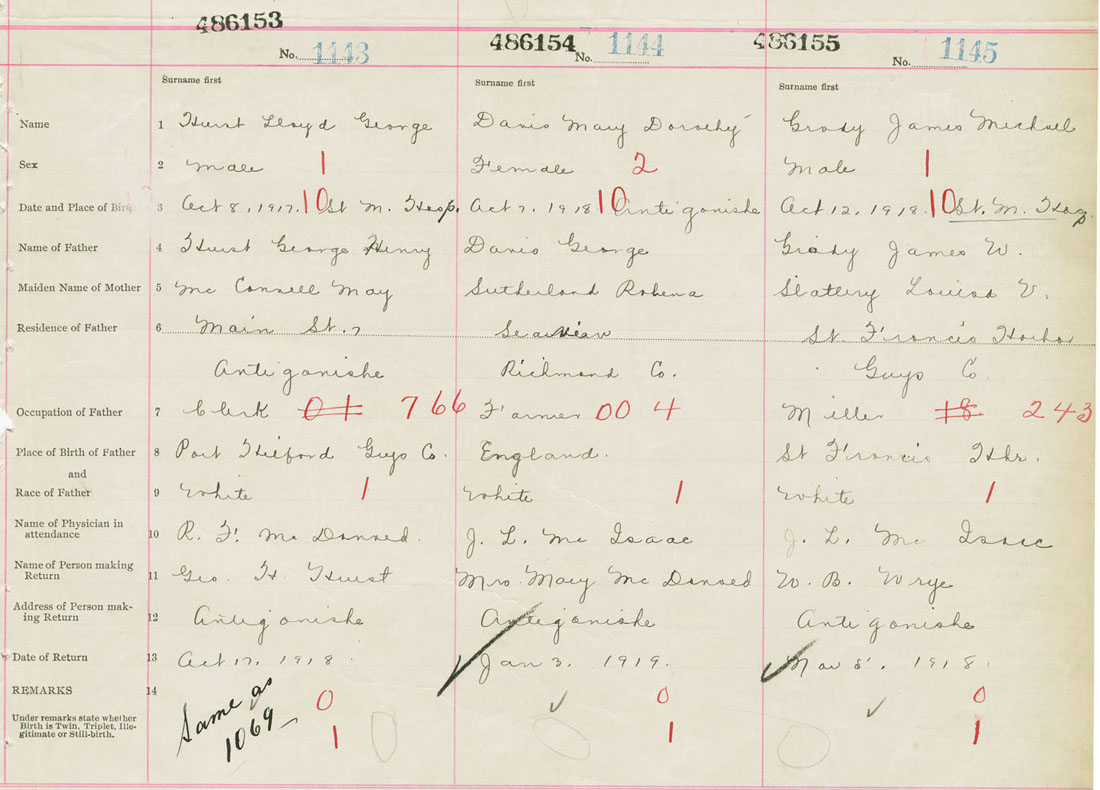 486153 486154 486155
No. 1143 No. 1144 No. 1145
Surname first Surname first Surname first
Name 1 Hurst Lloyd George Davis Mary Dorothy Grady James Michael
Sex 2 Male 1 Female 2 Male 1
Date and Place of Birth 3 Oct 8, 1917. 10 St M. Hosp. Oct 7, 1918 10 Antigonishe Oct 12, 1918. 10 St. M. Hosp
Name of Father 4 Hurst George Henry Davis George Grady James W.
Maiden Name of Mother 5 McConnell May Sutherland Robena Slattery Louisa V.
Residence of Father 6 Main St., St. Francis Harbor
Antigonishe Richmond Co. Guys Co
Occupation of Father 7 Clerk 01 766 Farmer 004 Miller 18 243
Place of Birth of Father 8 Port Hilford Guys Co. England. St Francis Hbr.
and
Race of Father 9 White 1 White 1 White 1
Name of Physician in
attendance 10 R. F. McDonald. J. L. McIsaac J. L. McIsaac
Name of Person making
Return 11 Geo. H. Hurst Mrs. Mary McDonald W. B. Wrye
Address of Person mak-
ing Return 12 Antigonishe Antigonishe Antigonishe
Date of Return 13 Oct 17, 1918. Jan 3. 1919. Nov 8, 1918.
REMARKS 14 Same as 0 0 0
Under remarks state whether
Birth is Twin, Triplet, Ille-
gitimate or Still-birth. 1069 1 1 1